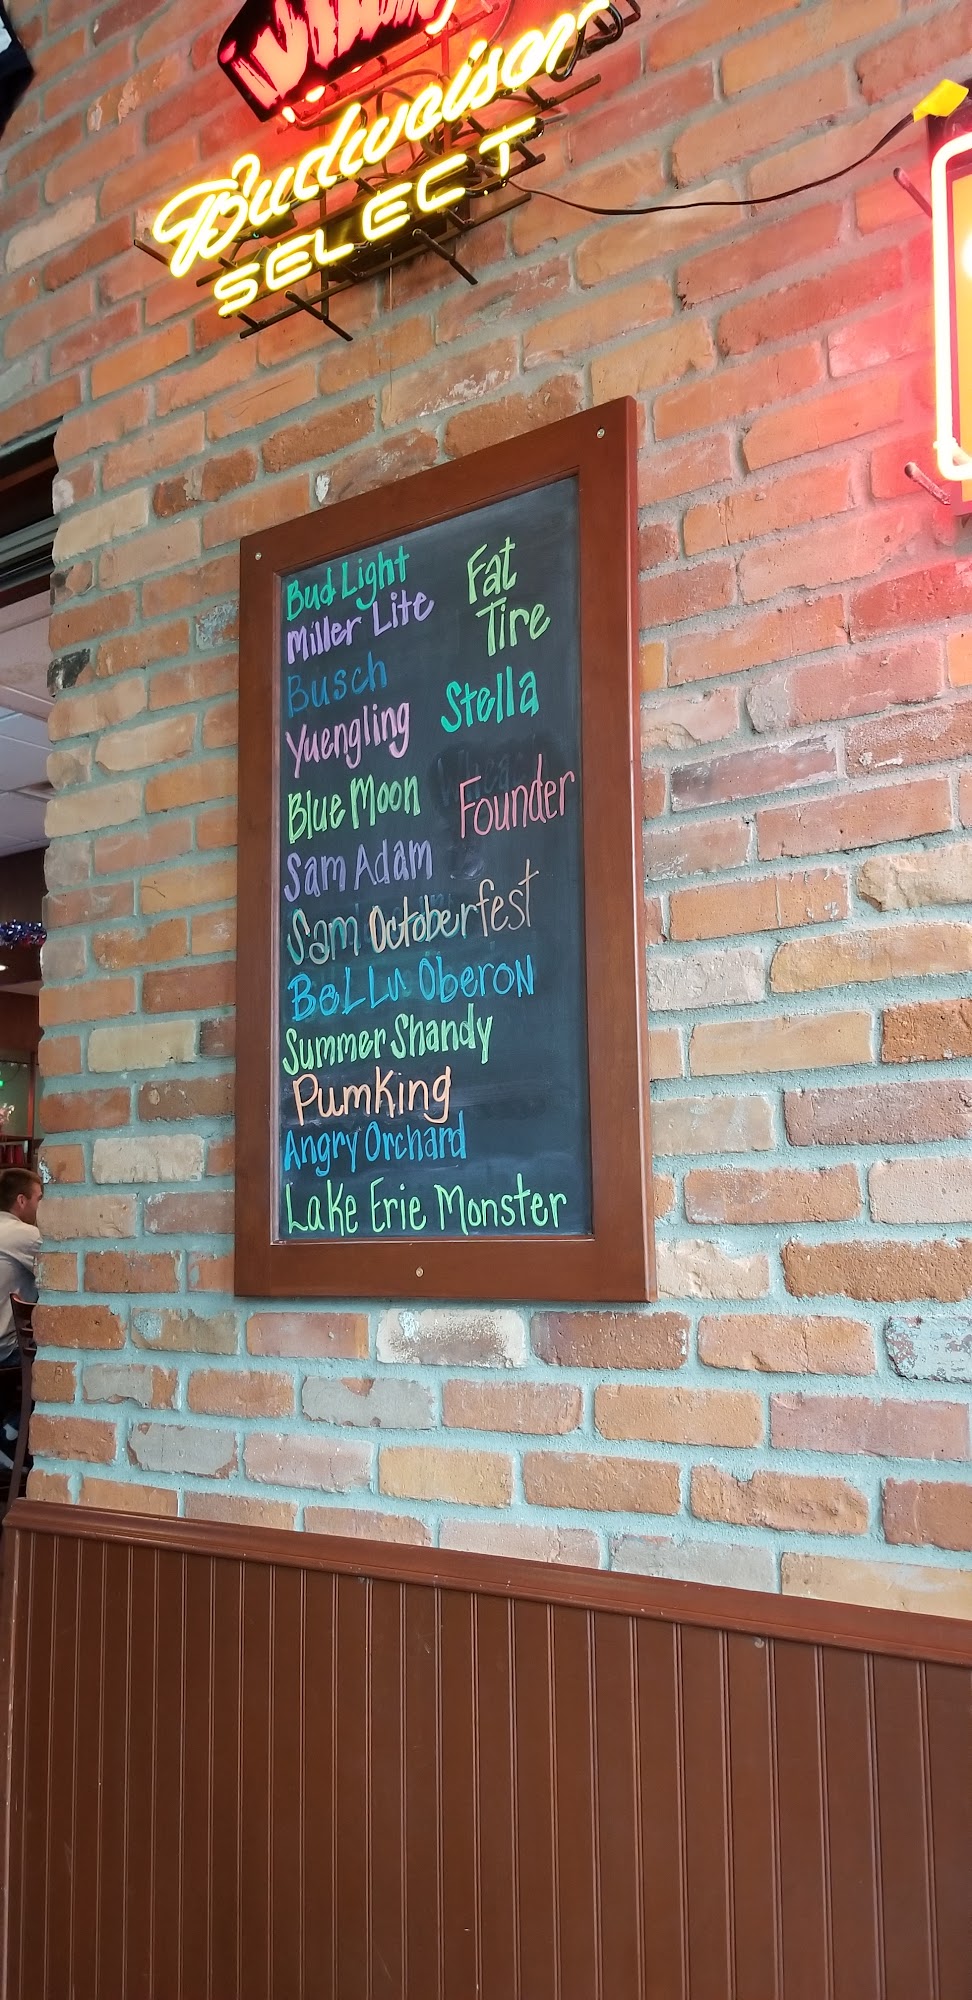 Budweiser
SELECT
Bud Light
Miller Lite
Busch
Yuengling
Blue Moon
Sam Adam
Sam Octoberfest
BeLLu Oberon
Summer Shandy
PumKing
Angry Orchard
Lake Erie Monster
Fat
Tire
Stella
Founder